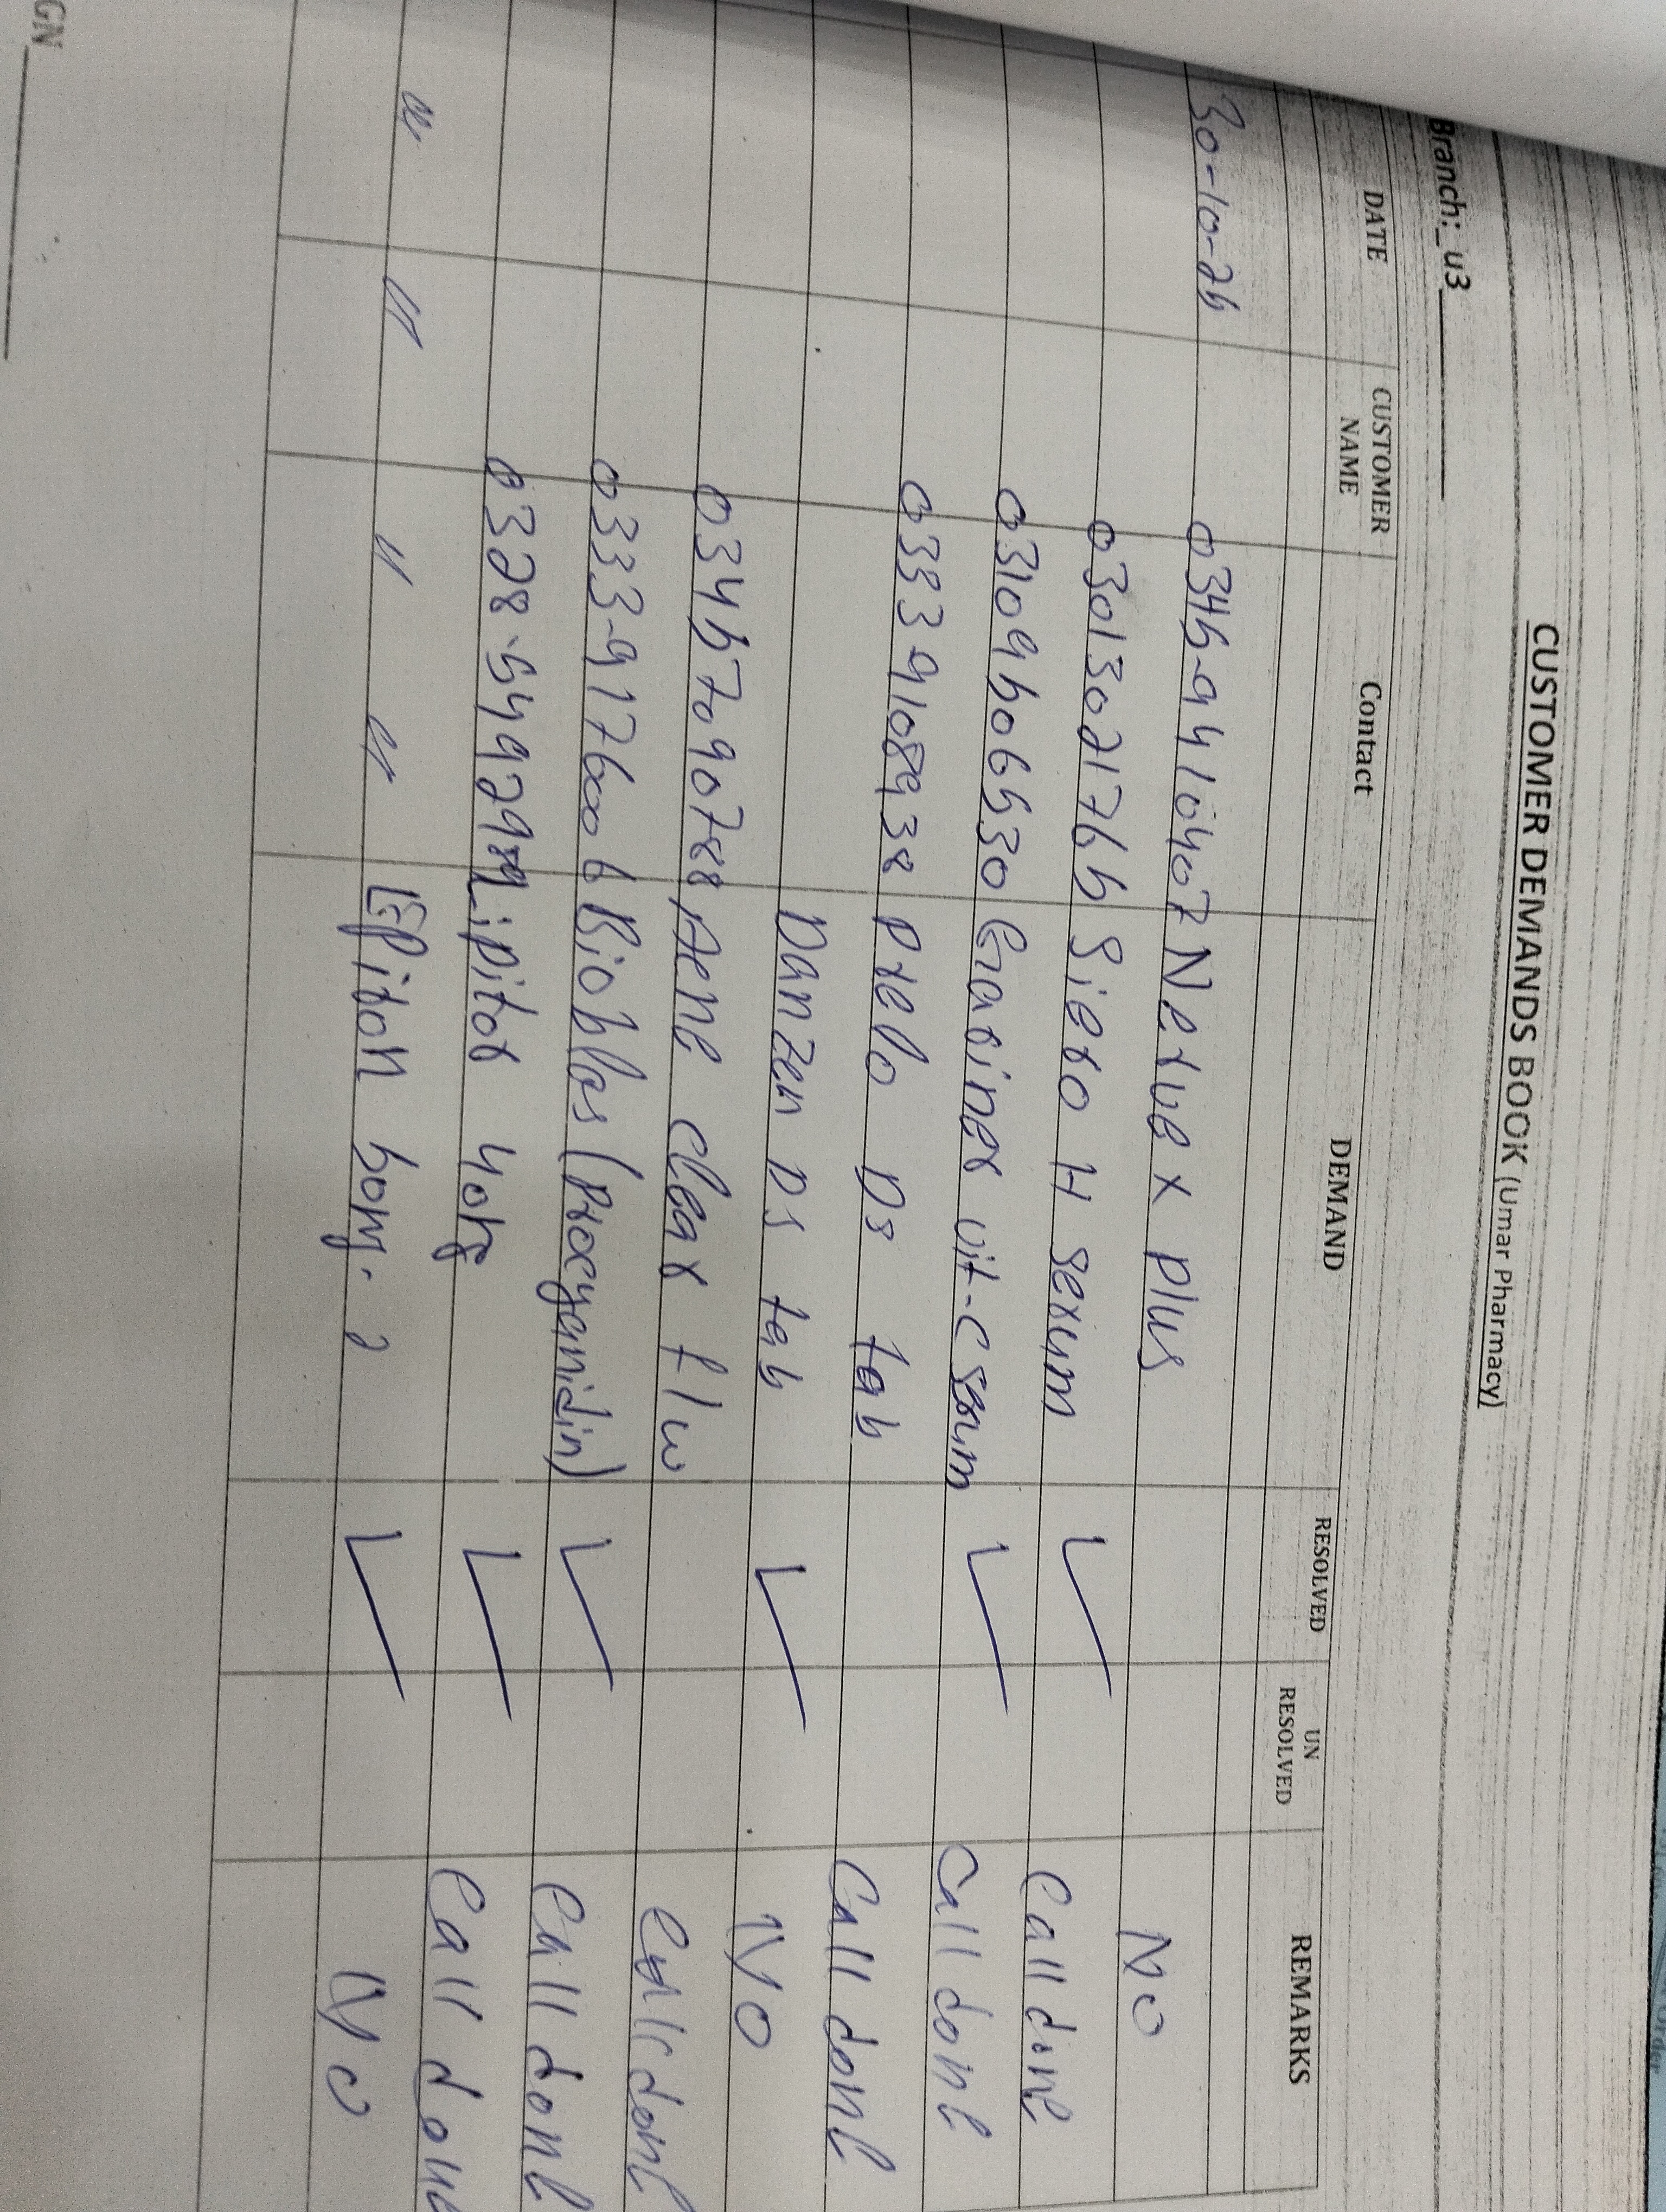 CUSTOMER DEMANDS BOOK (Umar Pharmacy)
Branch:_u3
DATE CUSTOMER NAME Contact DEMAND RESOLVED UN RESOLVED REMARKS
30-10-25 0345-9410407 Nervex plus NO
03013021765 Siero H serum ✓ Call done
Vit-C serum ✓ Call done
03339108938 Prelo DS tab Call done
Danzen DS tab ✓ NO
03457090788 Acne clear f/w Call done
0333-9176006 Bioblas (Procyanidin) ✓ Call done
Lipitor 40mg ✓ Call done
" " " " 50mg. 2 ✓ No
GN